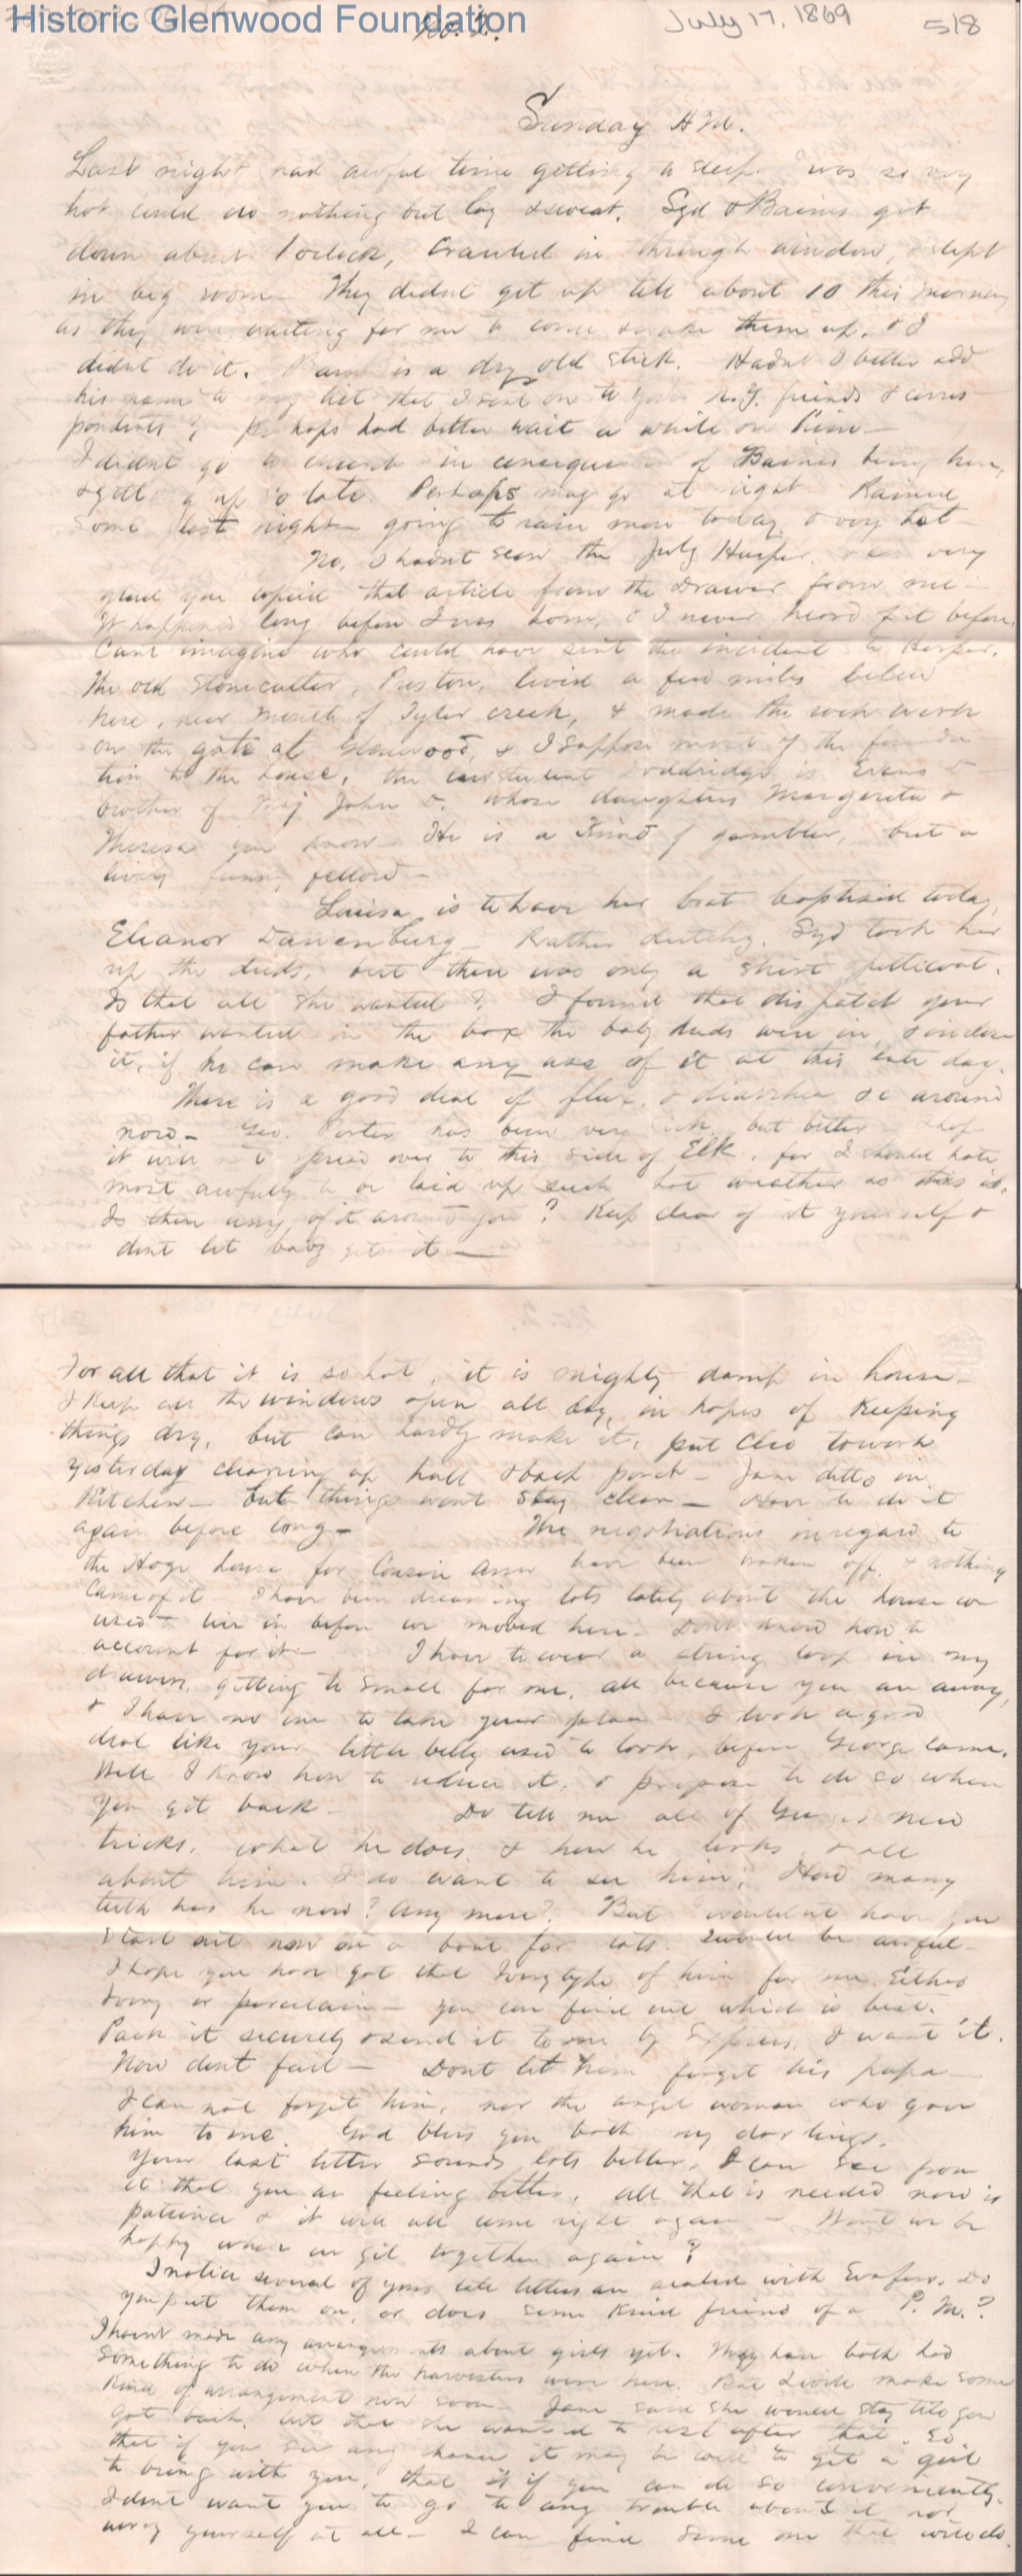 Historic Glenwood Foundation
No. 2.
July 17, 1869
518
Sunday A M.
Last night had awful time getting to sleep. 'twas so very
hot could do nothing but lay & sweat. Syd & Baines got
down about 1 oclock, crawled in through window, & slept
in big room. They didnt get up till about 10 this morning
as they were waiting for me to come & wake them up. & I
didnt do it. is a dry old stick. Hadnt I better add
his name to my list that I send on to your N.Y. friends & corres
pondents? Perhaps had better wait a while on him -
I didnt go to church in consequence of Baines being here,
& getting up so late. Perhaps may go at night Rained
some last night - going to rain more today & very hot -
No, I hadnt seen the July Harper. very
glad you copied that article from the Drawer from me -
It happened long before I was born, & I never heard of it before.
Cant imagine who could have sent the incident to Harper.
The old stonecutter, Preston, lived a few miles below
here, near mouth of Tyler creek, & made the work
on the gate at Glenwood, & I suppose most of the founda
tion to the house. the Doddridge is &
brother of Maj John D. whose daughters Margaretta &
Theresa you know - He is a kind of gambler, but a
funny fellow -
Louisa is to have her brat baptised today,
Eleanor Dannenburg - Rather dutchy. Syd took her
up the duds, but there was only a shirt & petticoat.
Is that all she wanted? I found that dispatch your
father wanted in the box the baby duds were in, & inclose
it, if he can make any use of it at this late day.
There is a good deal of flux, & diarrhea &c around
now - Geo. Porter has been very sick, but better - I hope
it will not spread over to this side of Elk, for I should hate
most awfully to be laid up such hot weather as this is.
Is there any of it around you? Keep clear of it yourself &
dont let baby get it -
For all that it is so hot, it is mighty damp in house -
I keep all the windows open all day, in hopes of keeping
things dry, but can hardly make it. put Cleo to work
yesterday cleaning up hall & back porch - Jane ditto in
Kitchen - but things wont stay clean - Have to do it
again before long - The negotiations in regard to
the Hoge house for Cousin Ann have been broken off, & nothing
came of it - I have been dreaming lots lately about the house we
used to live in before we moved here - Dont know how to
account for it - I have to wear a string loop in my
drawers, getting too small for me, all because you are away,
& I have no one to take your place - I look a good
deal like your little belly used to look, before George came.
Well I know how to reduce it, & propose to do so when
you get back - Do tell me all of new
tricks, what he does, & how he looks & all
about him. I do want to see him. How many
teeth has he now? Any more? But wouldnt have you
start out now on a boat for lots. Twould be awful -
I hope you have got that Ivorytype of him for me. Either
Ivory or porcelain - you can find out which is best.
Pack it securely & send it to me by Express. I want it.
Now dont fail - Dont let him forget his papa -
I can not forget him, nor the angel woman who gave
him to me. God bless you both my darlings.
Your last letter sounds lots better, I can see from
it that you are feeling better. All that is needed now is
patience & it will all come right again - Wont we be
happy when we get together again?
I notice several of your late letters are sealed with wafers. Do
you put them on, or does some kind friend of a P. M.?
I havent made any arrangements about girls yet. They have both had
something to do when the harvesters were here. But I will make some
kind of arrangement now soon - Jane said she would stay till you
got back, but that she wanted to rest after that. So
that if you see any chance it may be well to get a girl
to bring with you, that is if you can do so conveniently.
I dont want you to go to any trouble about it nor
worry yourself at all - I can find some one that will do.